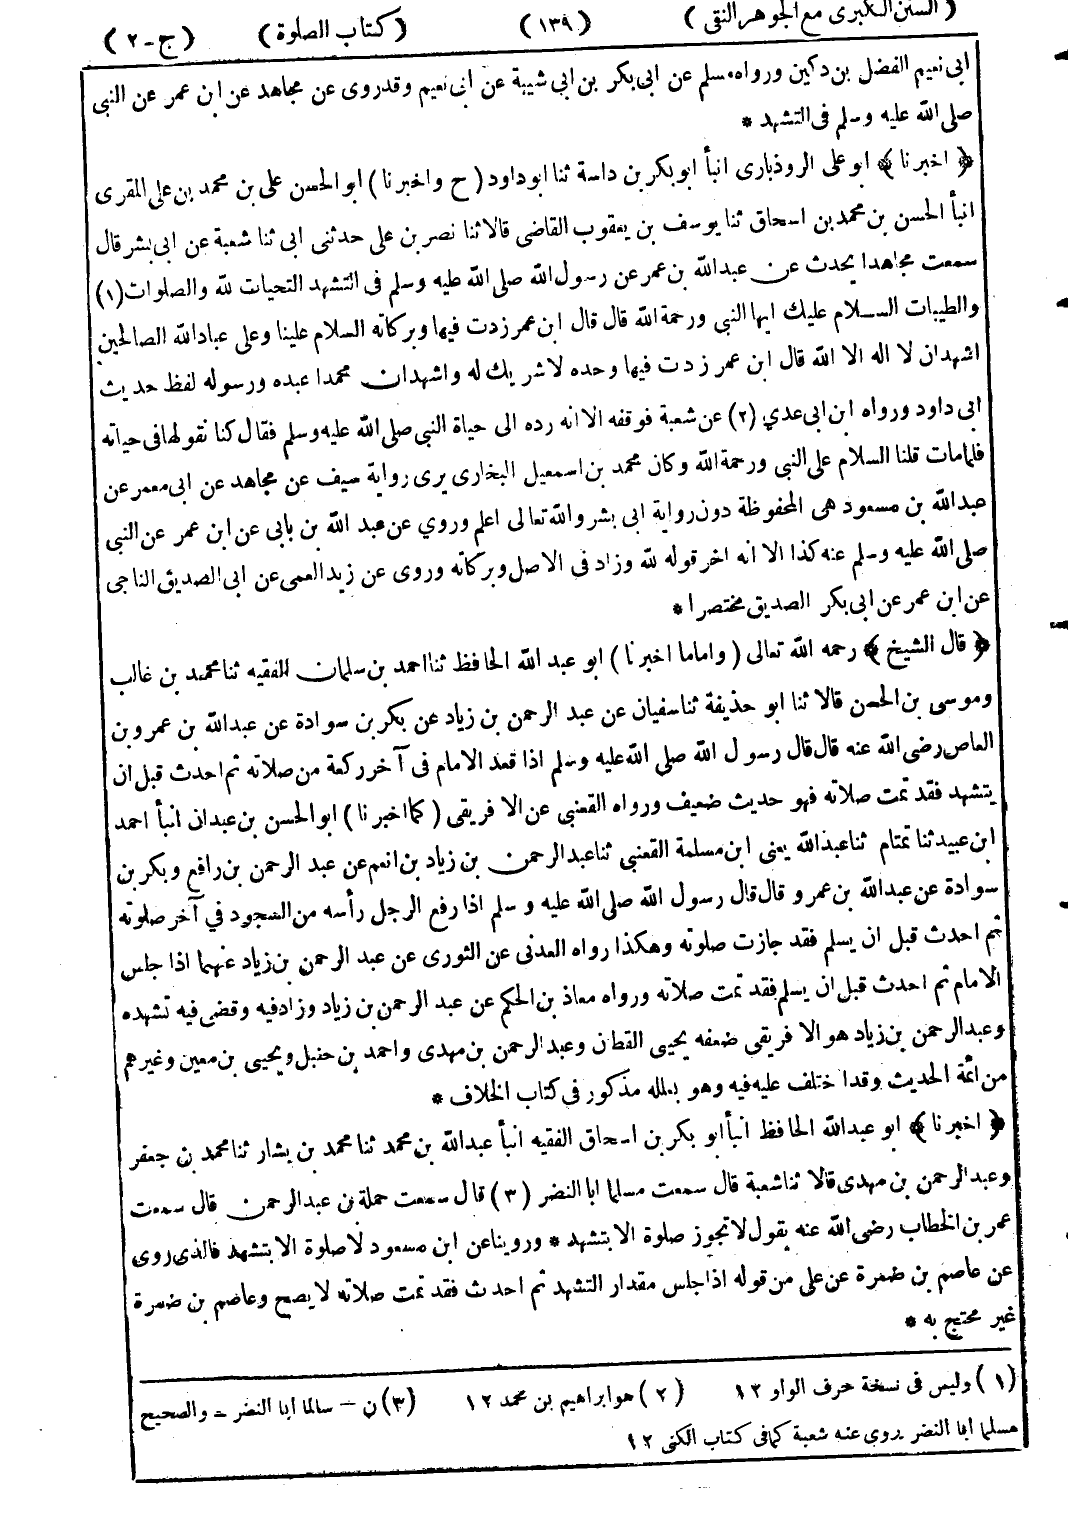 (السنن الكبرى مع الجوهر النقى) (١٣٩) (كتاب الصلوة) (ج-٢)
ابى نعيم الفضل بن دكين ورواه مسلم عن ابى بكر بن ابي شيبة عن ابى نعيم وقدروى عن مجاهد عن ابن عمر عن النبى
صلى الله عليه وسلم فى التشهد *
﴿ اخبرنا ﴾ ابو على الروذبارى انبأ ابوبكر بن داسة ثنا ابوداود (ح واخبرنا) ابو الحسن على بن محمد بن على المقرى
انبأ الحسن بن محمد بن اسحاق ثنا يوسف بن يعقوب القاضى قالا ثنا نصر بن على حدثنى ابى ثنا شعبة عن ابى بشر قال
سمعت مجاهدا يحدث عن عبدالله بن عمر عن رسول الله صلى الله عليه وسلم فى التشهد التحيات لله والصلوات (١)
والطيبات السلام عليك ايها النبى ورحمة الله قال قال ابن عمر زدت فيها وبركاته السلام علينا وعلى عبادالله الصالحين
اشهدان لا اله الا الله قال ابن عمر زدت فيها وحده لاشريك له واشهدان محمدا عبده ورسوله لفظ حديث
ابى داود ورواه ابن ابى عدي (٢) عن شعبة فوقفه الا انه رده الى حياة النبى صلى الله عليه وسلم فقال كنا نقولها فى حياته
فلمامات قلنا السلام على النبى ورحمة الله وكان محمد بن اسمعيل البخارى يرى رواية سيف عن مجاهد عن ابى معمر عن
عبدالله بن مسعود هى المحفوظة دون رواية ابى بشر والله تعالى اعلم وروي عن عبد الله بن بابى عن ابن عمر عن النبى
صلى الله عليه وسلم عنه كذا الا انه اخر قوله لله وزاد فى الاصل وبركاته وروى عن زيد العمى عن ابى الصديق الناجى
عن ابن عمر عن ابى بكر الصديق مختصرا *
﴿ قال الشيخ ﴾ رحمه الله تعالى (واماما اخبرنا) ابو عبد الله الحافظ ثنا احمد بن سلمان الفقيه ثنا محمد بن غالب
وموسى بن الحسن قالا ثنا ابو حذيفة ثنا سفيان عن عبد الرحمن بن زياد عن بكر بن سوادة عن عبدالله بن عمرو بن
العاص رضى الله عنه قال قال رسول الله صلى الله عليه وسلم اذا قعد الامام فى آخر ركعة من صلاته ثم احدث قبل ان
يتشهد فقد تمت صلاته فهو حديث ضعيف ورواه القعنبي عن الافريقى (كما اخبرنا) ابو الحسن بن عبدان انبأ احمد
ابن عبيد ثنا تمتام ثنا عبدالله يعنى ابن مسلمة القعنبى ثنا عبدالرحمن بن زياد بن انعم عن عبد الرحمن بن رافع وبكر بن
سوادة عن عبدالله بن عمرو قال قال رسول الله صلى الله عليه وسلم اذا رفع الرجل رأسه من السجود في آخر صلوته
ثم احدث قبل ان يسلم فقد جازت صلوته وهكذا رواه العدنى عن الثورى عن عبد الرحمن بن زياد عنهما اذا جلس
الامام ثم احدث قبل ان يسلم فقد تمت صلاته ورواه معاذ بن الحكم عن عبد الرحمن بن زياد وزاد فيه وقضى فيه تشهده
وعبدالرحمن بن زياد هو الافريقى ضعفه يحيى القطان وعبدالرحمن بن مهدى واحمد بن حنبل ويحيى بن معين وغيرهم
من ائمة الحديث وقدا ختلف عليه فيه وهو بعلله مذكور فى كتاب الخلاف *
﴿ اخبرنا ﴾ ابو عبدالله الحافظ انبأ ابو بكر بن اسحاق الفقيه انبأ عبدالله بن محمد ثنا محمد بن بشار ثنا محمد بن جعفر
وعبد الرحمن بن مهدى قالا ثنا شعبة قال سمعت مسلما ابا النضر (٣) قال سمعت حملة بن عبدالرحمن قال سمعت
عمر بن الخطاب رضى الله عنه يقول لا تجوز صلوة الا بتشهد * وروينا عن ابن مسعود لا صلوة الا بتشهد فالذى روى
عن عاصم بن ضمرة عن على من قوله اذا جلس مقدار التشهد ثم احدث فقد تمت صلاته لا يصح وعاصم بن ضمرة
غير محتج به *
(١) وليس فى نسخة حرف الواو ١٢ (٢) هو ابراهيم بن محمد ١٢ (٣) ن – سالما ابا النضر – والصحيح
مسلما ابا النضر يروى عنه شعبة كما فى كتاب الكنى ١٢